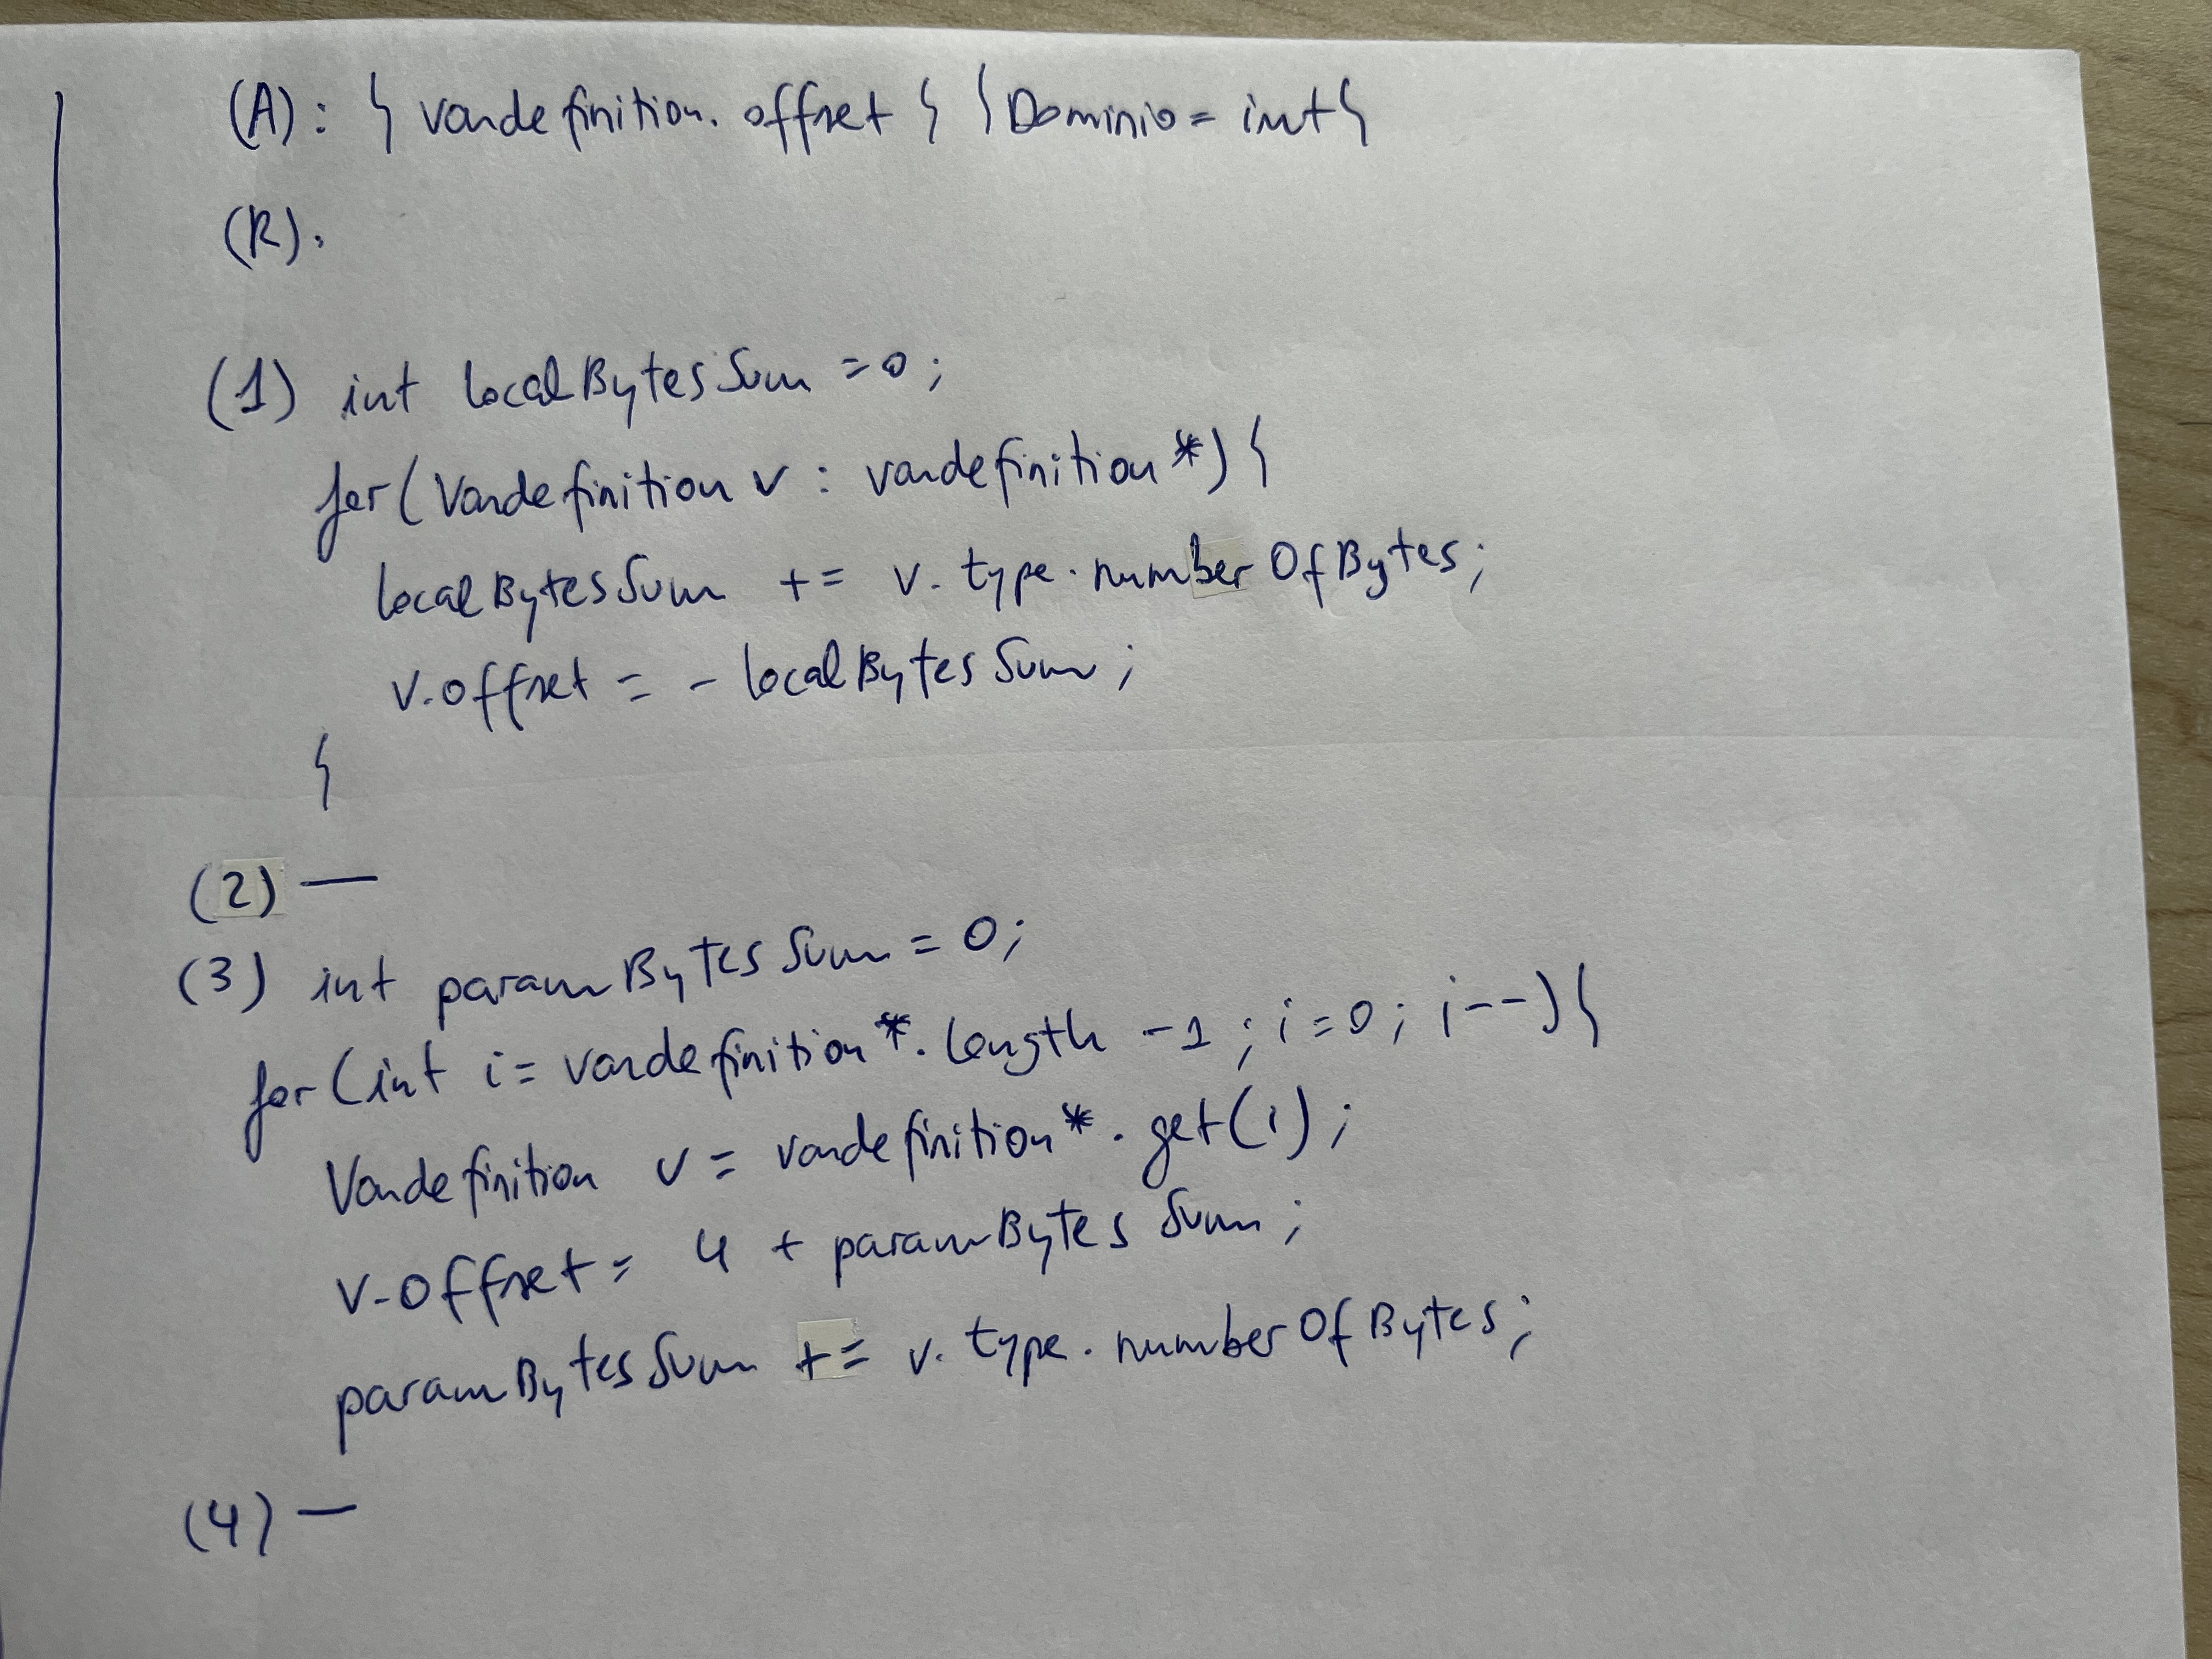 (A): { vardefinition. offset } {Dominio = int}
(R).
(1) int localBytesSum = 0;
for(Vardefinition v : vardefinition*) {
localBytesSum += v. type. numberOfBytes;
v.offset = - localBytesSum;
}
(2) —
(3) int paramBytesSum = 0;
for(int i= vardefinition*. length -1; i=0; i--) {
Vardefinition v= vardefinition*. get(i);
v.offset= 4 + paramBytesSum;
paramBytesSum += v. type. numberOfBytes;
(4) —